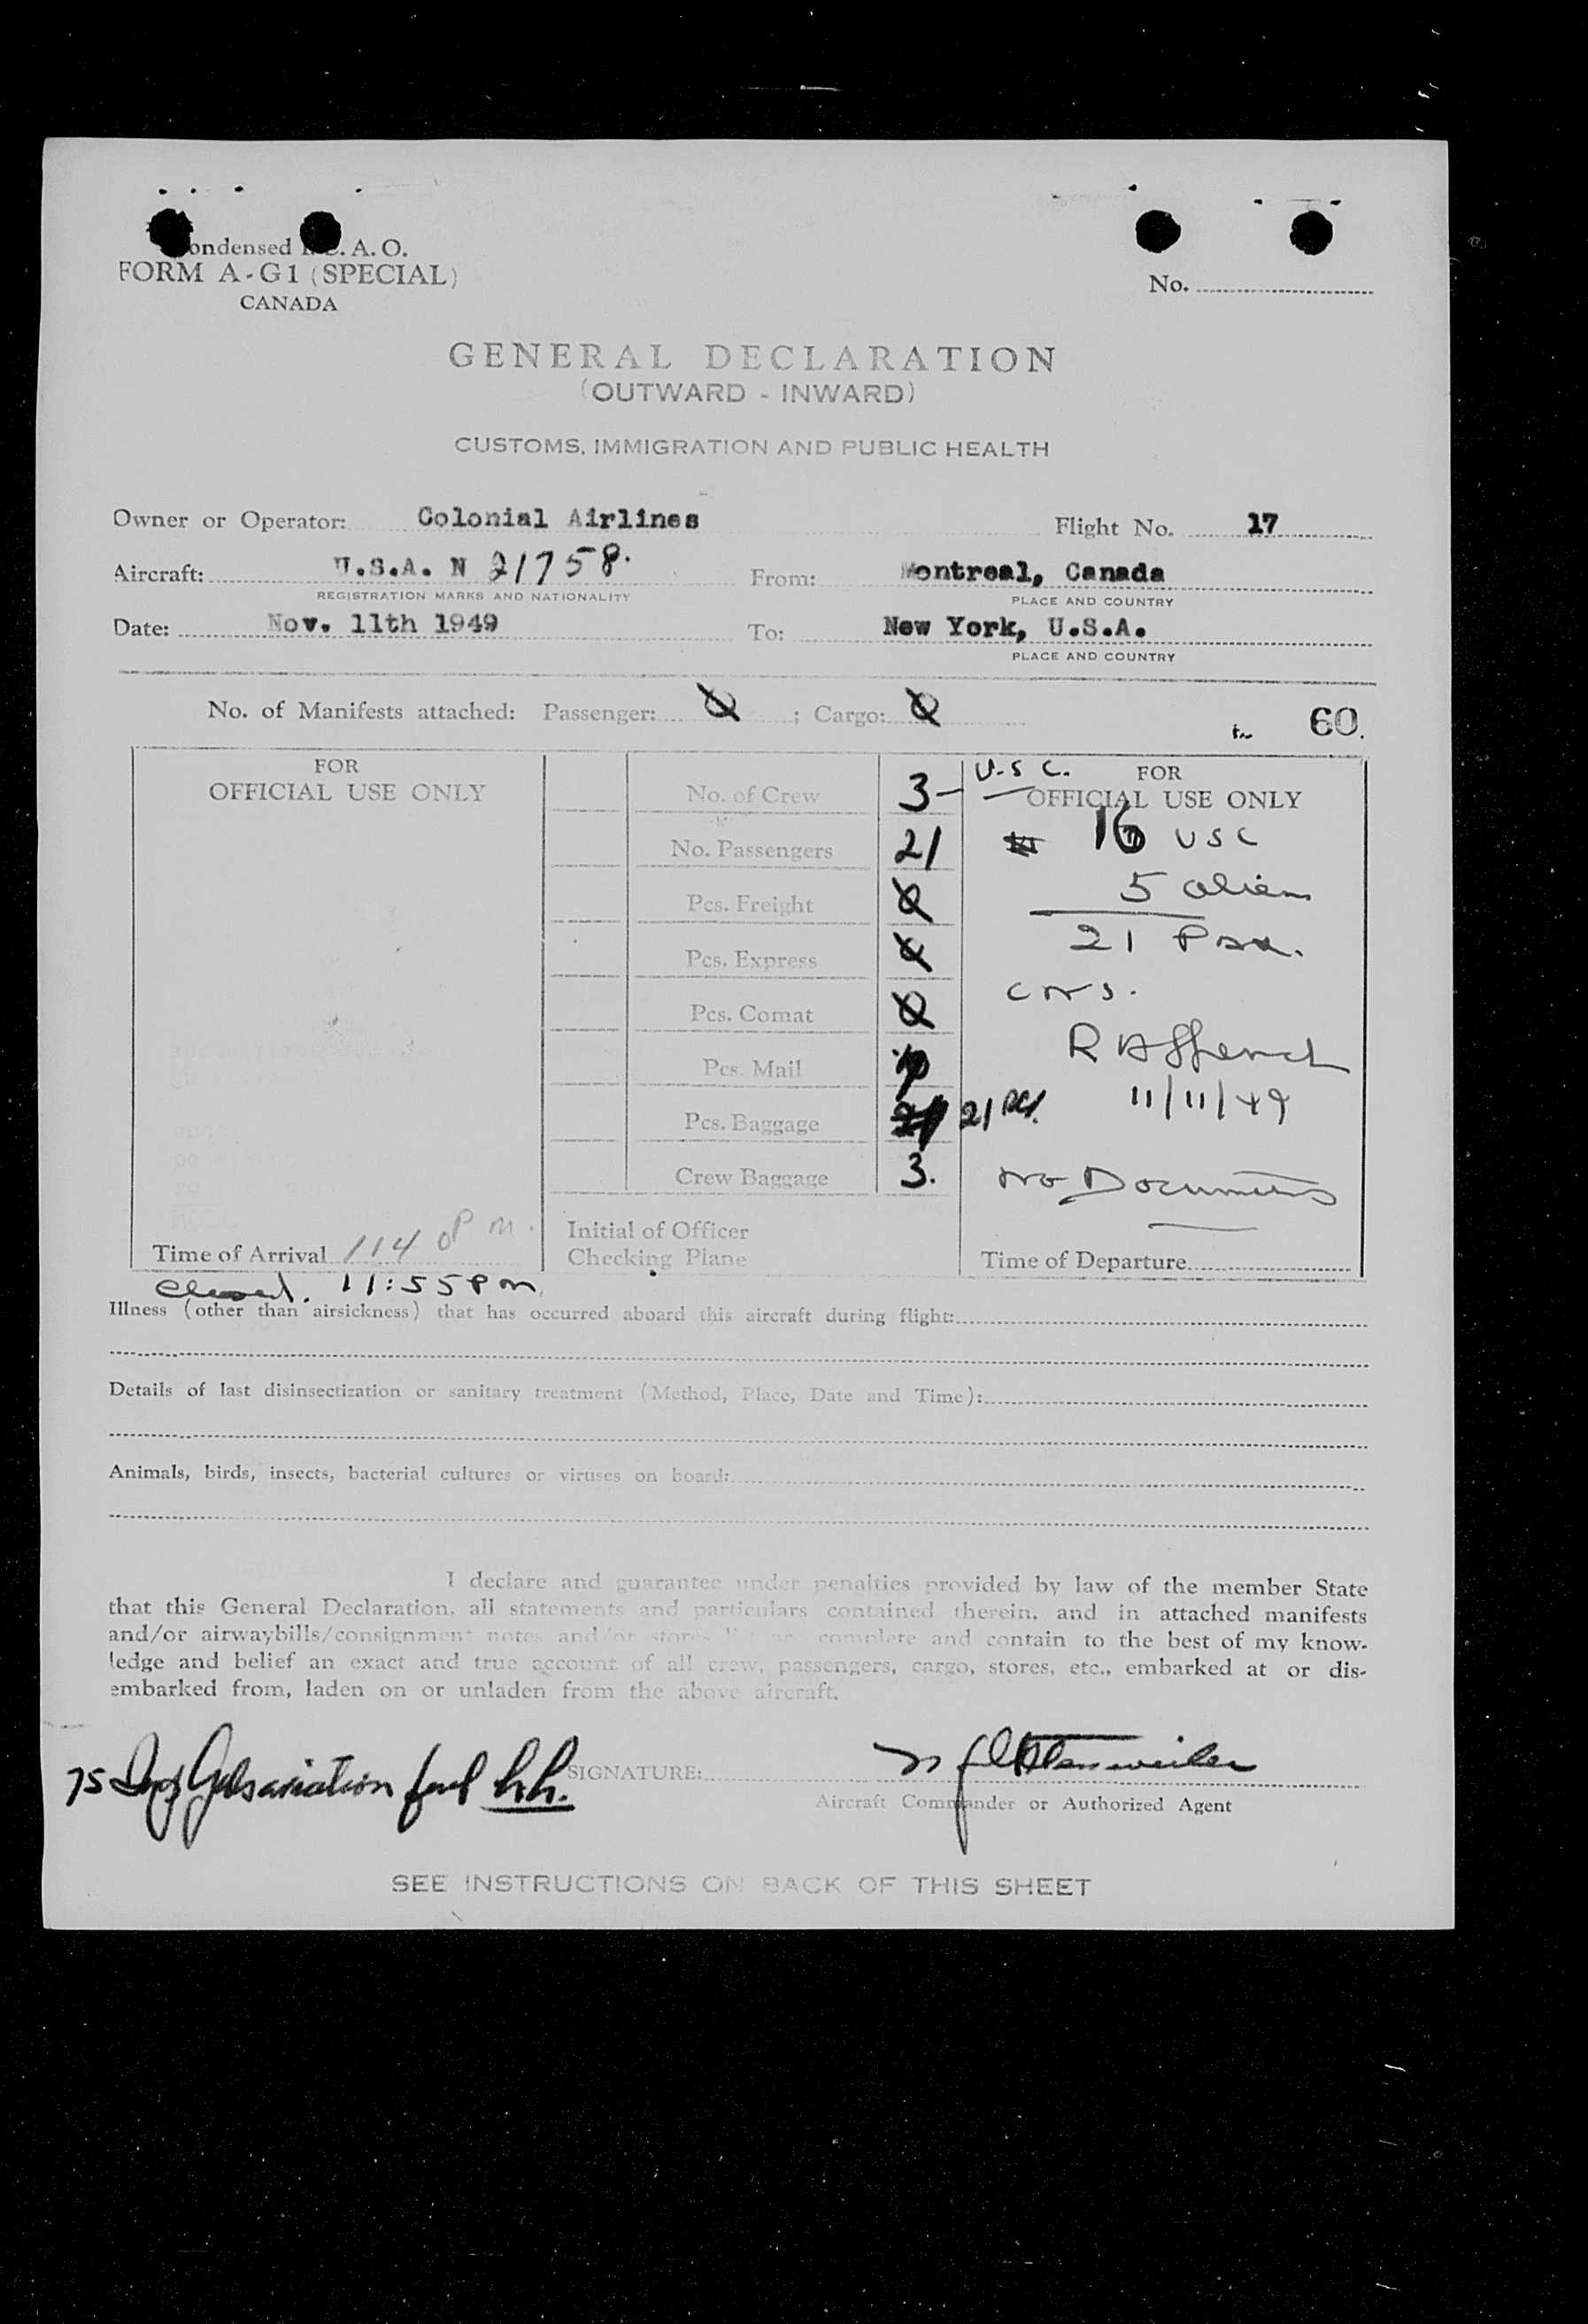 ondensed I.C.A.O.
FORM A-G1 (SPECIAL)
CANADA
No.
GENERAL DECLARATION
(OUTWARD - INWARD)
CUSTOMS, IMMIGRATION AND PUBLIC HEALTH
Owner or Operator: Colonial Airlines Flight No. 17
Aircraft: U.S.A. N 21758. From: Montreal, Canada
REGISTRATION MARKS AND NATIONALITY PLACE AND COUNTRY
Date: Nov. 11th 1949 To: New York, U.S.A.
PLACE AND COUNTRY
No. of Manifests attached: Passenger: 0 ; Cargo: 0
60.
FOR
OFFICIAL USE ONLY
No. of Crew 3 - U.S C.
FOR
OFFICIAL USE ONLY
No. Passengers 21 16 USC
Pcs. Freight 0 5 alien
Pcs. Express 0 21 Pax.
Pcs. Comat 0
Pcs. Mail
11/11/49
Pcs. Baggage 21 pcs.
Crew Baggage 3. No Documents
Time of Arrival 1140 Pm.
Initial of Officer
Checking Plane
Time of Departure
Closed. 11:55 Pm
Illness (other than airsickness) that has occurred aboard this aircraft during flight:
Details of last disinsectization or sanitary treatment (Method, Place, Date and Time):
Animals, birds, insects, bacterial cultures or viruses on board:
I declare and guarantee under penalties provided by law of the member State
that this General Declaration, all statements and particulars contained therein, and in attached manifests
and/or airwaybills/consignment notes and/or stores list are complete and contain to the best of my know-
ledge and belief an exact and true account of all crew, passengers, cargo, stores, etc., embarked at or dis-
embarked from, laden on or unladen from the above aircraft.
75 Imp Gals aviation fuel
SIGNATURE:
Aircraft Commander or Authorized Agent
SEE INSTRUCTIONS ON BACK OF THIS SHEET